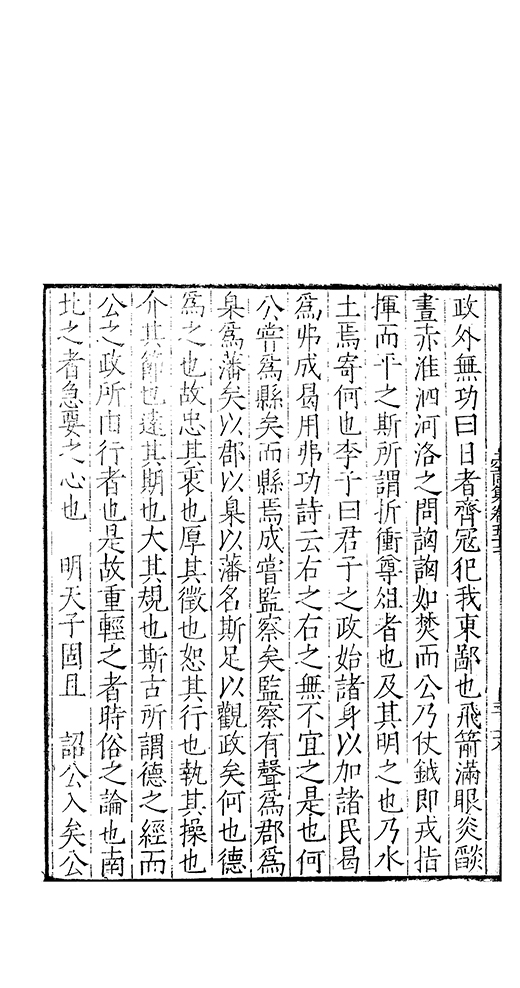 政外無功曰日者齊寇犯我東鄙也飛箭滿眼炎燄
晝赤淮泗河洛之問詾詾如焚而公乃仗鉞即戎指
揮而平之斯所謂折衝尊俎者也及其明之也乃水
土焉寄何也李子曰君子之政始諸身以加諸民曷
爲弗成曷用弗功詩云右之右之無不宜之是也何
公嘗爲縣矣而縣焉成嘗監察矣監察有聲爲郡爲
臬爲藩矣以郡以臬以藩名斯足以觀政矣何也德
爲之也故忠其衷也厚其徵也恕其行也執其操也
介其節也遠其期也大其規也斯古所謂德之經而
公之政所由行者也是故重輕之者時俗之論也南
北之者急要之心也　明天子固且　詔公入矣公